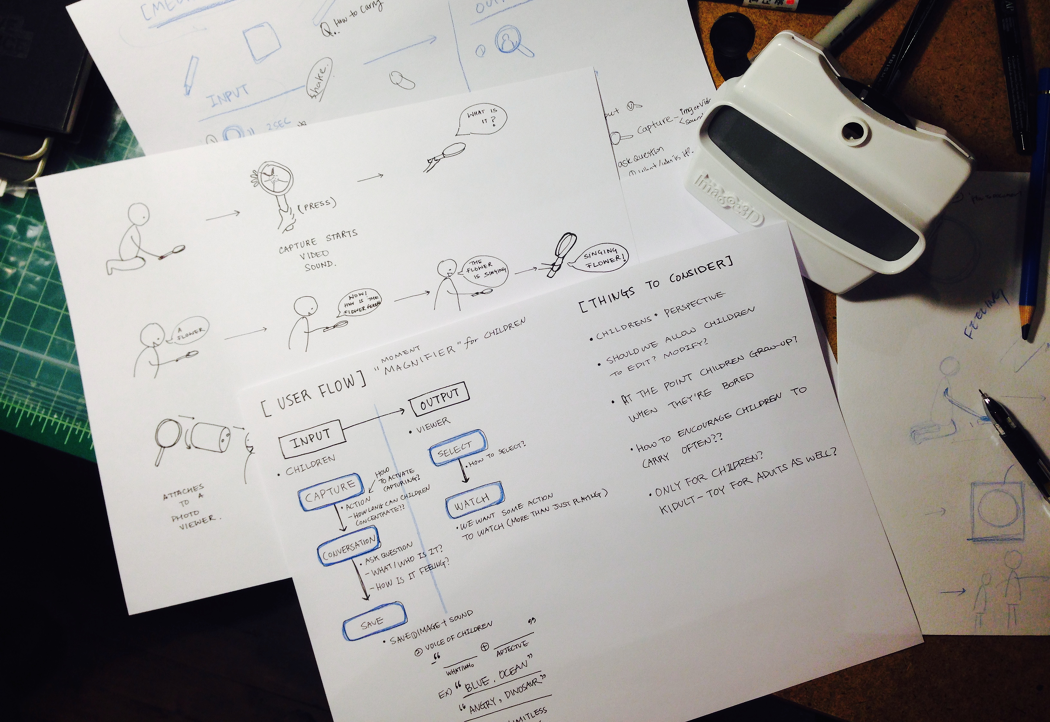 Q. How to carry
INPUT
shake.
Q
2SEC
Capture -
ask question
Feeling
WHAT IS
IT?
(PRESS)
CAPTURE STARTS
VIDEO
SOUND.
A
FLOWER
WOW!
HOW IS THE
THE
FLOWER
IS SINGING
SINGING
FLOWER!
ATTACHES
TO A
PHOTO
VIEWER.
[USER FLOW]
"MOMENT
MAGNIFIER" for CHILDREN
INPUT
OUTPUT
• CHILDREN
• VIEWER
CAPTURE
HOW
TO ACTIVATE
CAPTURING?
• ACTION
- HOW LONG CAN CHILDREN
CONCENTRATE??
CONVERSATION
• ASK QUESTION
- WHAT/WHO IS IT?
- HOW IS IT FEELING?
SAVE
• SAVE ① IMAGE + SOUND
② VOICE OF CHILDREN
" ___ ⊕ ___ "
WHAT/WHO ADJECTIVE
EX) "BLUE. OCEAN"
"ANGRY, DINOSAUR"
LIMITLESS
SELECT
• HOW TO SELECT?
WATCH
• WE WANT SOME ACTION
TO WATCH (MORE THAN JUST PLAYING)
[THINGS TO CONSIDER]
• CHILDRENS' PERSPECTIVE
• SHOULD WE ALLOW CHILDREN
TO EDIT? MODIFY?
• AT THE POINT CHILDREN GROW-UP?
WHEN THEY'RE BORED
• HOW TO ENCOURAGE CHILDREN TO
CARRY OFTEN??
• ONLY FOR CHILDREN?
KIDULT - TOY FOR ADULTS AS WELL?